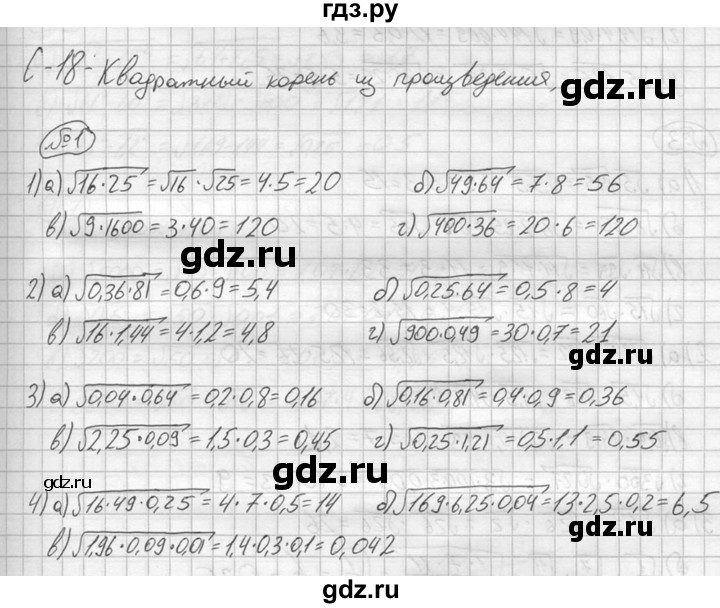 гдз.ру
С-18- Квадратный корень из произведения,
gdz.ru
№1
1) а) √16·25 = √16 · √25 = 4·5 = 20 б) √49·64 = 7·8 = 56
в) √9·1600 = 3·40 = 120 г) √400·36 = 20·6 = 120
gdz.ru
2) а) √0,36·81 = 0,6·9 = 5,4 б) √0,25·64 = 0,5·8 = 4
в) √16·1,44 = 4·1,2 = 4,8 г) √900·0,49 = 30·0,7 = 21
gdz.ru
3) а) √0,04·0,64 = 0,2·0,8 = 0,16 б) √0,16·0,81 = 0,4·0,9 = 0,36
в) √2,25·0,09 = 1,5·0,3 = 0,45 г) √0,25·1,21 = 0,5·1,1 = 0,55
gdz.ru
gdz.ru
4) а) √16·49·0,25 = 4·7·0,5 = 14 б) √169·6,25·0,04 = 13·2,5·0,2 = 6,5
gdz.ru
в) √1,96·0,09·0,01 = 1,4·0,3·0,1 = 0,042
gdz.ru